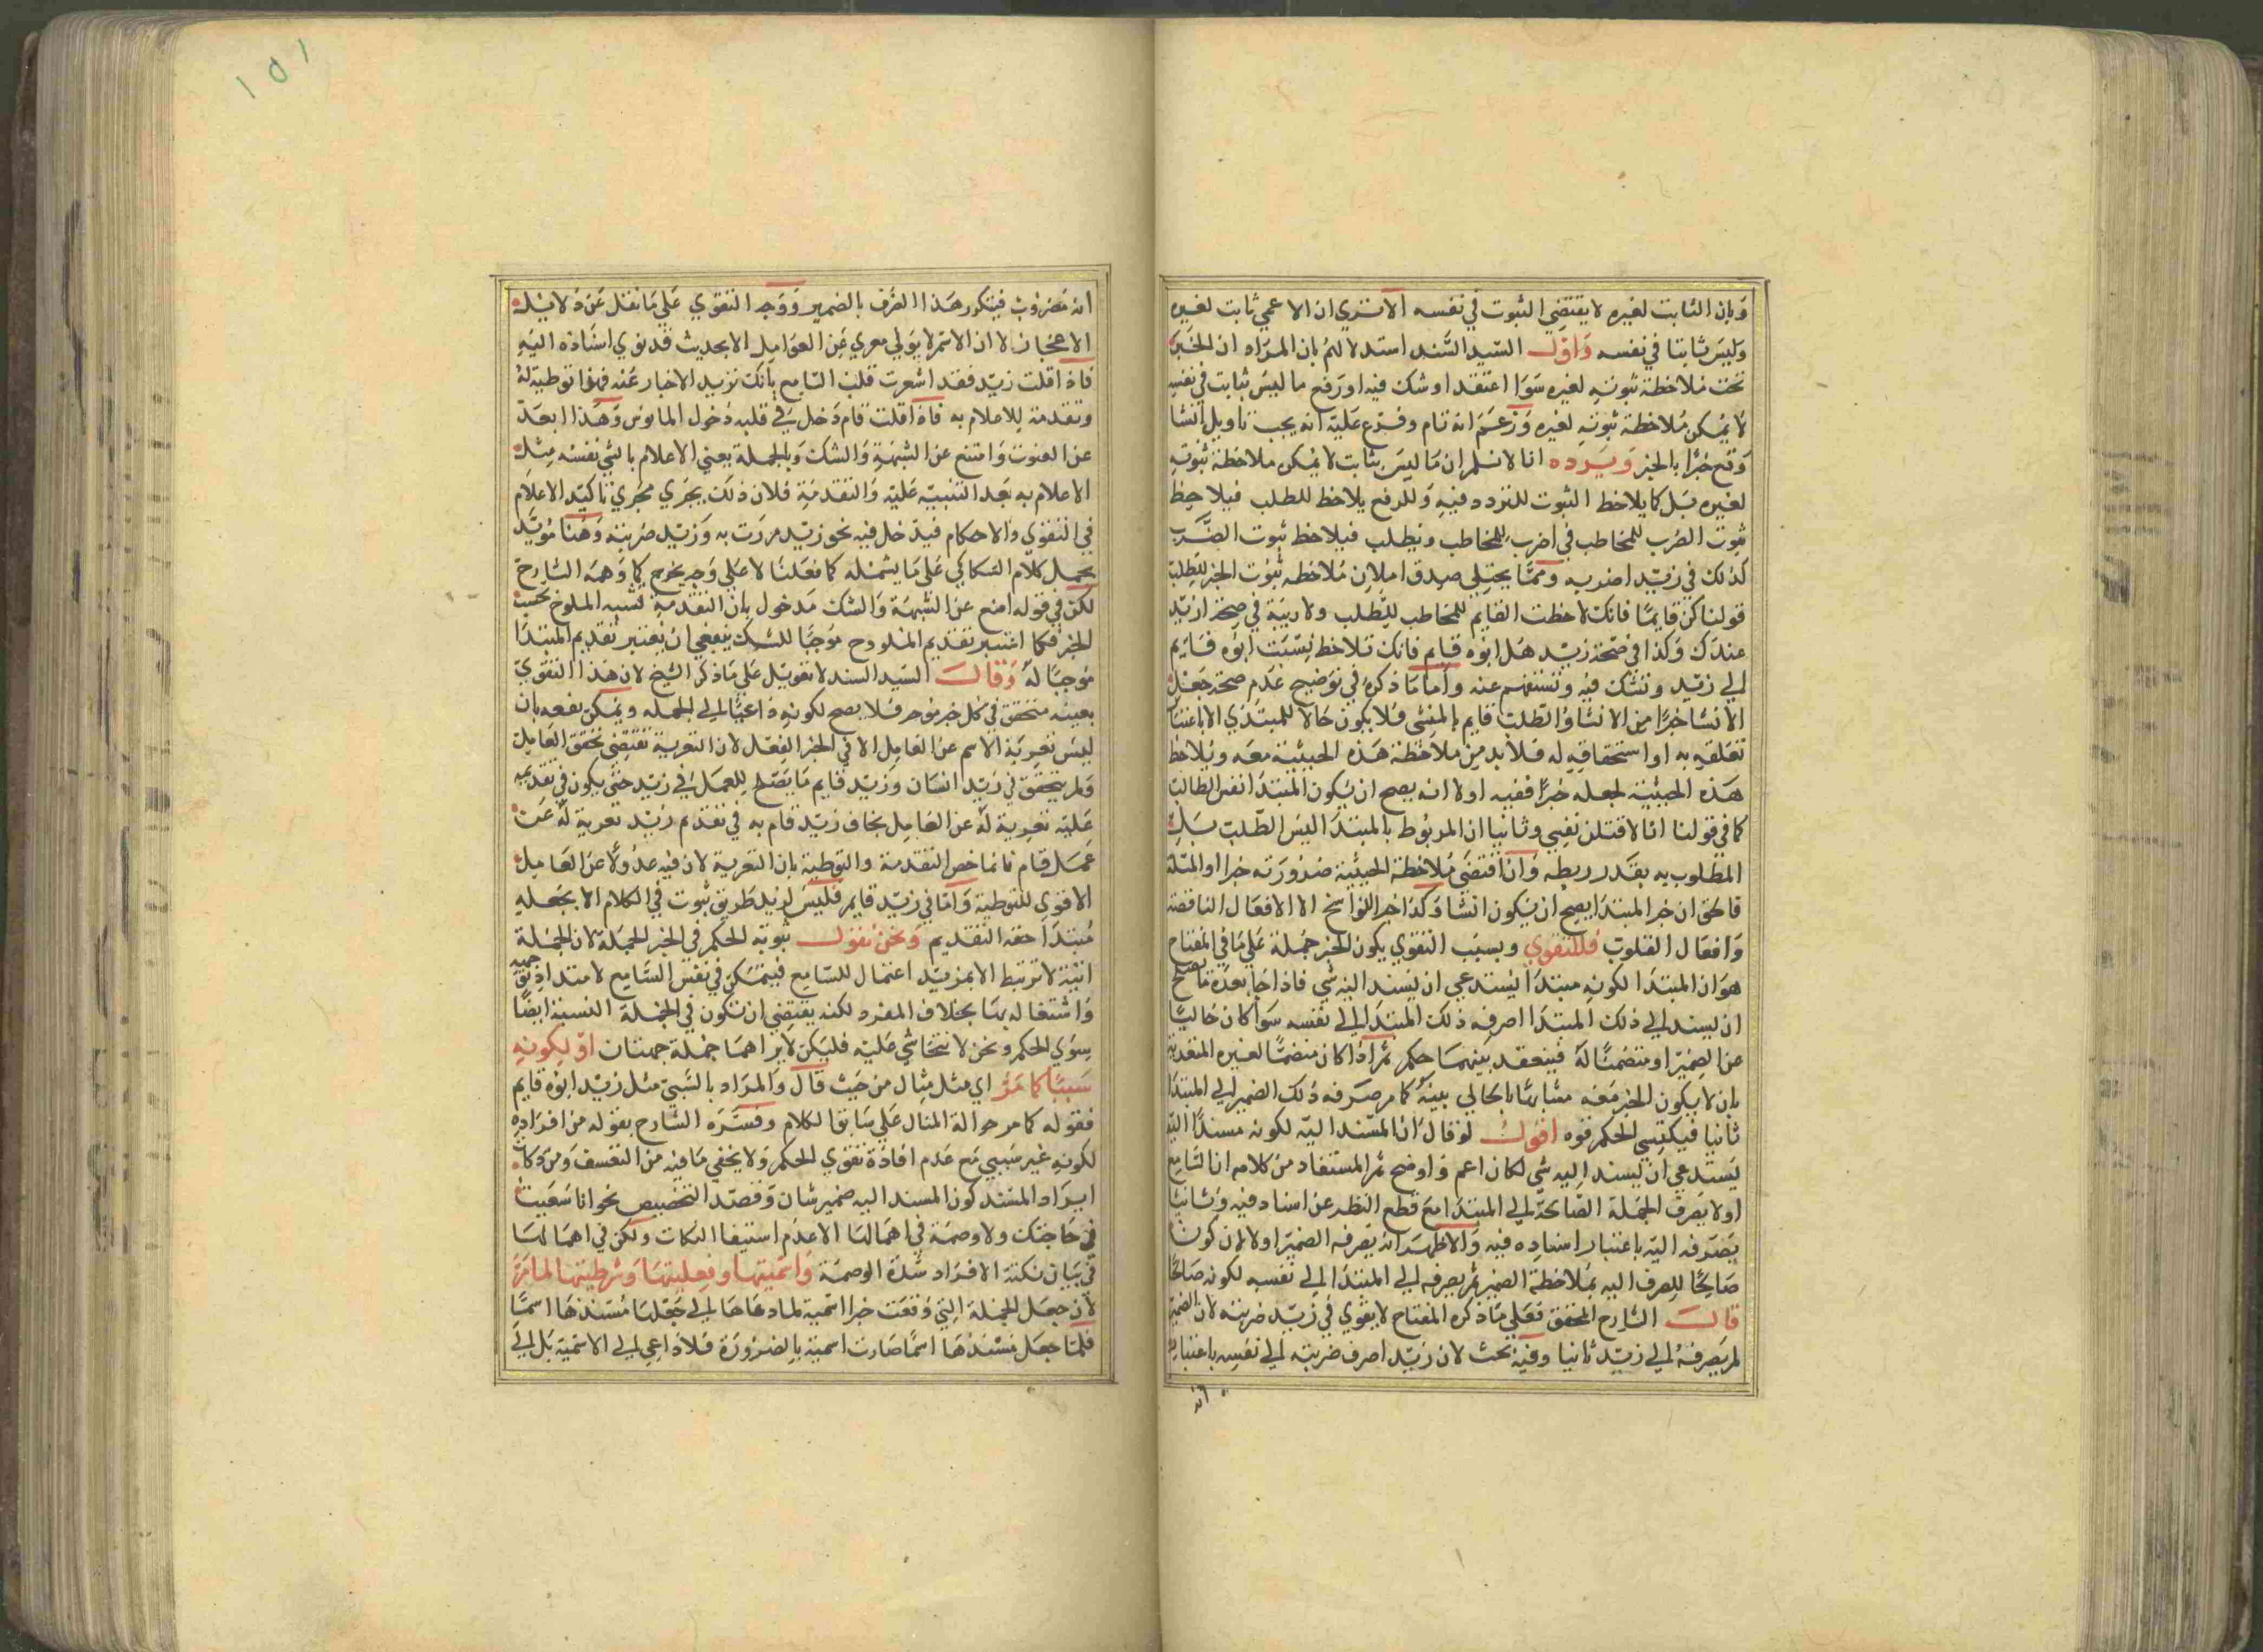 وبان الثابت لغيره لا يقتضي الثبوت في نفسه الا تري ان الاعمي ثابت لغيره
وليس ثابتا في نفسه واول السيد السند استدلالهم بان المراد ان الخبر
تحت ملاحظة ثبوته لغيره سوا اعتقد او شك فيه او رفع ما ليس بثابت في نفسه
لا يمكن ملاحظة ثبوته لغيره وزعم انه تام وفرع عليه انه يجب تاويل انشا
وقع خبرا بالخبر ويرده انا لا نسلم ان ما ليس بثابت لا يمكن ملاحظة ثبوته
لغيره بل كما يلاحظ الثبوت للتردد فيه وللرفع يلاحظ للطلب فيلاحظ
ثبوت الضرب للمخاطب في اضرب للمخاطب ويطلب فيلاحظ ثبوت الضرب
كذلك في زيد اضربه ومما يجتلي صدق املان ملاحظه ثبوت الخبر للطلب
قولنا كن قايما فانك لاحظت القايم للمخاطب للطلب ولا ريبة في صحة ازيد
عندك وكذا في صحة زيد هل ابوه قايم فانك تلاحظ نسبت ابوه قايم
الي زيد وتشك فيه وتستفهم عنه واما ما ذكره في توضيح عدم صحة جعل
الانشا خبرا من الانشا والطلب قايم بالمنشي فلا يكون حالا للمبتدي الا باعتبار
تعلقه به او استحقاقه له فلا بد من ملاحظة هذه الحيثية معه ويلاحظ
هذه الحيثية لجعله خبرا ففيه اولا انه يصح ان يكون المبتدا نفس الطالب
كما في قولنا انا لاقتلن نفيي وثانيا ان المربوط بالمبتدا ليس الطلب بل
المطلوب به بقدر ربطه وان اقتضي ملاحظة الحيثية ضرورته خبرا والمتلة
فالحق ان خبر المبتدا يصح ان يكون انشا وكذا خبر النواسخ الا الافعال الناقصة
وافعال القلوب فللتقوي وبسبب التقوي يكون الخبر جملة علي ما في المفتاح
هو ان المبتدا لكونه مبتدا يستدعي ان يسند اليه شي فاذا جا بعده ما يصلح
ان يسند الي ذلك المبتدا اصرفه ذلك المبتدا الي نفسه سوا كان خاليا
عن الضمير او متضمنا له فينعقد بينهما حكم ثم اذا كان متضمنا لغيره المتقدمة
بان لا يكون الخبر معه مشابها بالخالي بينه كما مر صرفه ذلك الضمير الي المبتدا
ثانيا فيكتسي الحكم قوه اقول لو قال ان المسند اليه لكونه مسندا اليه
يستدعي ان يسند اليه شي لكان اعم واوضح ثم المستفاد من كلامه ان السامع
اولا يصرف الجملة الصالحة الي المبتدا مع قطع النظر عن اسناد فيه وثانيا
يصرفه اليه باعتبار اسناده فيه والاظهر انه يصرفه الضمير اولا لان كونه
صالحا للصرف اليه بملاحظة الضمير ثم يصرفه الي المبتدا الي نفسه لكونه صالحا
قال الشارح المحقق فعلي ما ذكره المفتاح لا يقوي في زيد ضربته لان الضمير
لم يصرفه الي زيد ثانيا وفيه بحث لان زيدا صرف ضربته الي نفسه باعتبار
انه
١٥١
انه مضروب فيتكرر هذا الصرف بالضمير ووجه التقوي علي ما نقل عن دلايل
الاعجاز لا ان الاسم لا يولي معري عن العوامل الا بحديث قد نوي اسناده اليه
فاذا قلت زيد فقد اشعرت قلب السامع بانك تريد الاخبار عنه فهذا توطية له
وتقدمة للاعلام به فاذا قلت قام دخل في قلبه دخول المانوس وهذا ابعد
عن الفوت وامتنع عن الشبهة والشك وبالجملة يعني الاعلام بالشي نفسه مثل
الاعلام به بعد التنبيه عليه والتقدمة فلان ذلك يجري مجري تاكيد الاعلام
في التقوي والاحكام فيدخل فيه نحو زيد مررت به وزيد ضربته وهنا مؤيد
يحمل كلام السكاكي علي ما يشمله كما فعلنا لا علي وجه يخرج كما وهمه الشارح
لكن في قوله امنع عن الشبهة والشك مدخول بان التقدمة لشبه الملوح بحسب
الخبر فكما اعتبر تقديم الملوح موجبا للشك ينبغي ان يعتبر تقديم المبتدا
موجبا له وقال السيد السند لا تعويل علي ما ذكر الشيخ لان هذا التقوي
بعينه متحقق في كل خبر موخر فلا يصح لكونه داعيا الي الجمله ويمكن دفعه بان
ليس تعرية الاسم عن العامل الا في الخبر الفعل لان التعرية تقتضي تحقق العامل
ولم يتحقق في زيد انسان وزيد قايم ما يصلح للعمل في زيد حتي يكون في تقديمه
عليه تعرية له عن العامل بخلاف زيد قام به في تقدم زيد تعرية له عن
عمل قام فانما خص التقدمة والتوطية بان التعرية لان فيه عدولا عن العامل
الاقوي للتوطية واما في زيد قايم فليس لزيد طريق ثبوت في الكلام الا بجعله
مبتدا حقه التقديم ونحن نقول ثبوته الحكم في الخبر الجملة لان الجملة
اتية لا ترتبط الا بمزيد اعتمال للسامع فيتمكن في نفس السامع لامتداد توجهه
واشتغاله بها بخلاف المفرد لكنه يقتضي ان تكون في الجملة النسبة ايضا
سوي الحكم ونحن لا نتحاشي عليه فليكن لايراهما جملة جهتان او لكونه
سببيا كما مر اي مثل مثال من حيث قال والمراد بالسببي مثل زيد ابوه قايم
فقوله كما مر حوالة المثال علي سابق الكلام وفسره الشارح بقوله من افراده
لكونه غير سببي مع عدم افادة تقوي الحكم ولا يخفي ما فيه من التعسف ومن نكات
ايراد المسند كون المسند اليه ضمير شان وقصد التخصيص نحو انا سعيت
في حاجتك ولا وصمة في اهمالها الا عدم استيفا النكات ولكن في اهمالها
في بيان نكتة الافراد شدة الوصمة واسميتها وفعليتها وشرطيتها لما مر
لان جعل الجملة التي وقعت خبرا اسمية لما دعا الي جعل مسندها اسما
فلما جعل مسندها اسما صارت اسمية بالضرورة فلا داعي الي الاسمية بل الي